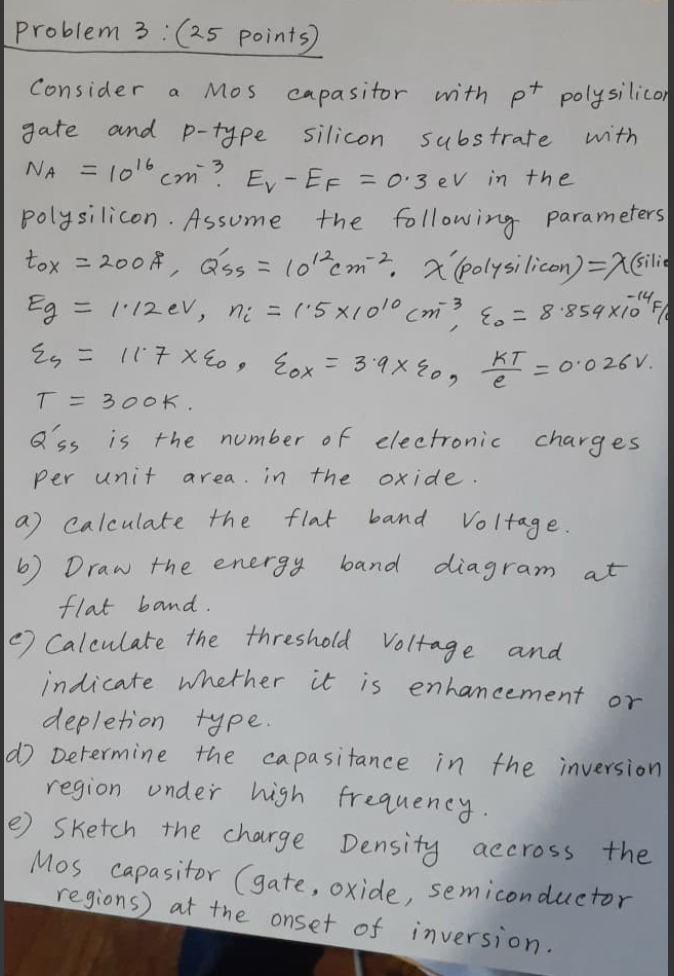 Problem 3 : (25 points)
Consider a Mos capasitor with p+ polysilicon
gate and p-type silicon substrate with
NA = 10^16 cm^-3. Ev - EF = 0.3 eV in the
polysilicon. Assume the following parameters
tox = 200Å, Q'ss = 10^12 cm^-2, χ'(polysilicon) = χ(silic
Eg = 1.12 eV, ni = 1.5 x 10^10 cm^-3, ε0 = 8.859 x 10^-14 F/
εs = 11.7 x ε0, εox = 3.9 x ε0, KT/e = 0.026 V.
T = 300K.
Q'ss is the number of electronic charges
per unit area. in the oxide.
a) Calculate the flat band Voltage.
b) Draw the energy band diagram at
flat band.
c) Calculate the threshold Voltage and
indicate whether it is enhancement or
depletion type.
d) Determine the capasitance in the inversion
region under high frequency.
e) Sketch the charge Density accross the
Mos capasitor (gate, oxide, semiconductor
regions) at the onset of inversion.